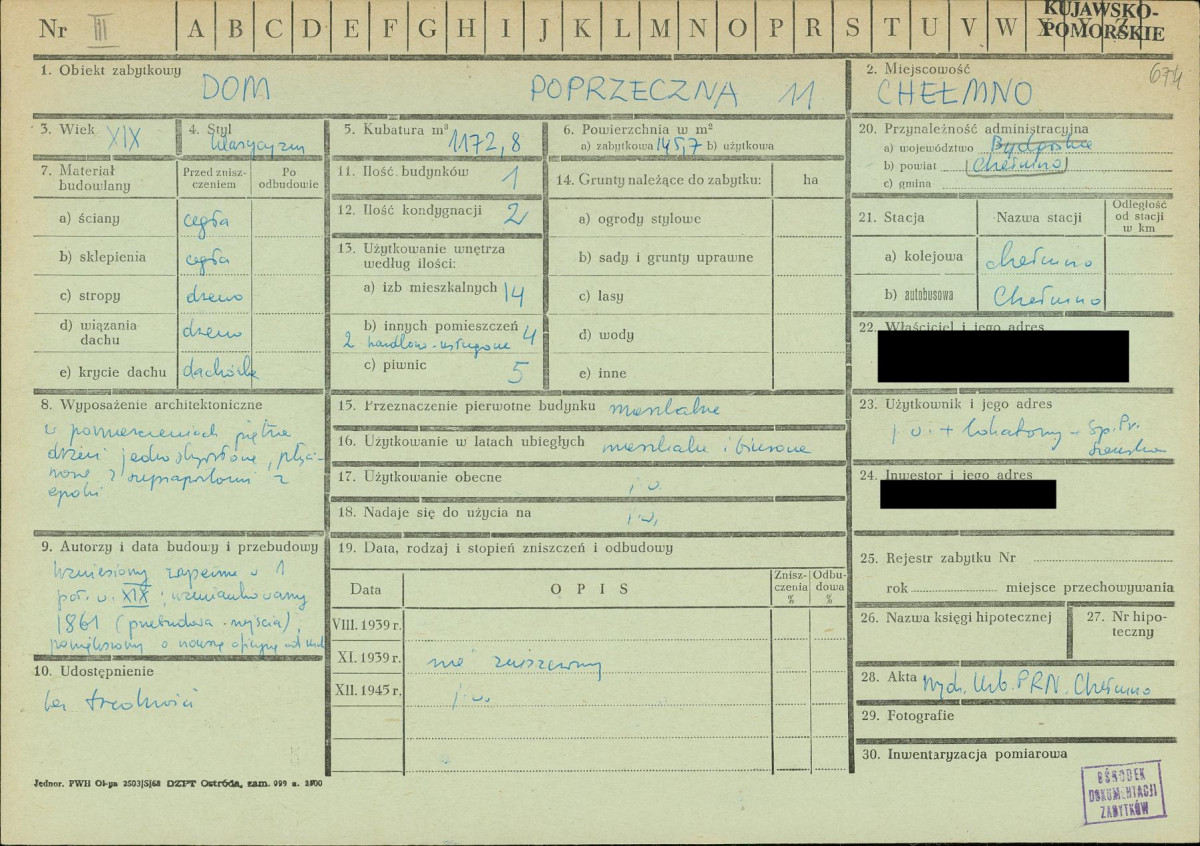 Nr III A B C D E F G H I J K L M N O P R S T U V W X Y Z
KUJAWSKO-
POMORSKIE
674
1. Obiekt zabytkowy
DOM POPRZECZNA 11
2. Miejscowość
CHEŁMNO
3. Wiek XIX
4. Styl
klasycyzm
5. Kubatura m³
1172,8
6. Powierzchnia w m²
a) zabytkowa 145,7 b) użytkowa
7. Materiał
budowlany
Przed znisz-
czeniem
Po
odbudowie
a) ściany cegła
b) sklepienia cegła
c) stropy drzewo
d) wiązania
dachu drzewo
e) krycie dachu dachówka
8. Wyposażenie architektoniczne
w pomieszczeniach piętra
drzwi jednoskrzydłowe, płyci-
nowe z supraportami z
epoki
9. Autorzy i data budowy i przebudowy
Wzniesiony zapewne w 1
poł. w. XIX; wzmiankowany
1861 (przebudowa wejścia),
powiększony o nową oficynę
10. Udostępnienie
bez trudności
11. Ilość budynków 1
12. Ilość kondygnacji 2
13. Użytkowanie wnętrza
według ilości:
a) izb mieszkalnych 14
b) innych pomieszczeń 4
2 handlowo-usługowe
c) piwnic 5
14. Grunty należące do zabytku: ha
a) ogrody stylowe
b) sady i grunty uprawne
c) lasy
d) wody
e) inne
15. Przeznaczenie pierwotne budynku mieszkalne
16. Użytkowanie w latach ubiegłych mieszkalne i biurowe
17. Użytkowanie obecne j.w.
18. Nadaje się do użycia na j.w.
19. Data, rodzaj i stopień zniszczeń i odbudowy
Data
O P I S
Znisz-
czenia
%
Odbu-
dowa
%
VIII. 1939 r.
XI. 1939 r. nie zniszczony
XII. 1945 r. j.w.
20. Przynależność administracyjna
a) województwo Bydgoskie
b) powiat Chełmno
c) gmina
21. Stacja
Nazwa stacji
Odległość
od stacji
w km
a) kolejowa Chełmno
b) autobusowa Chełmno
22. Właściciel i jego adres
23. Użytkownik i jego adres
j.w. + lokatorzy - Sp. Pr.
24. Inwestor i jego adres
25. Rejestr zabytku Nr
rok miejsce przechowywania
26. Nazwa księgi hipotecznej
27. Nr hipo-
teczny
28. Akta Wydz. Urb. PRN. Chełmno
29. Fotografie
30. Inwentaryzacja pomiarowa
OŚRODEK
DOKUMENTACJI
ZABYTKÓW
Jednor. PWH Ol-yn 2503|S|68 DZPT Ostróda, zam. 999 n. 2500